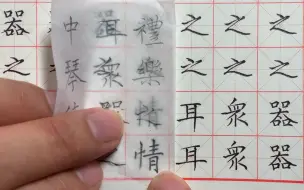 器 之 中 禮 之 之 之
之 之 琴 衆 樂 之 之 之
器 情 耳 衆 器
情 耳 衆 器